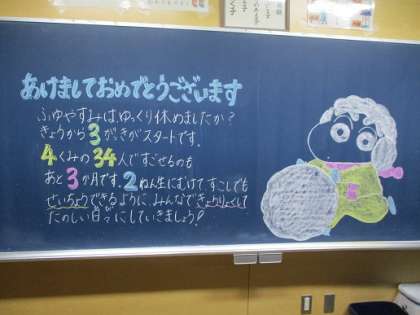 あけましておめでとうございます
ふゆやすみはゆっくり休めましたか？
きょうから3がっきがスタートです。
4くみの34人ですごせるのも
あと3か月です。2ねん生にむけて、すこしでも
せいちょうできるように、みんなできょうりょくして
たのしい日々にしていきましょう！